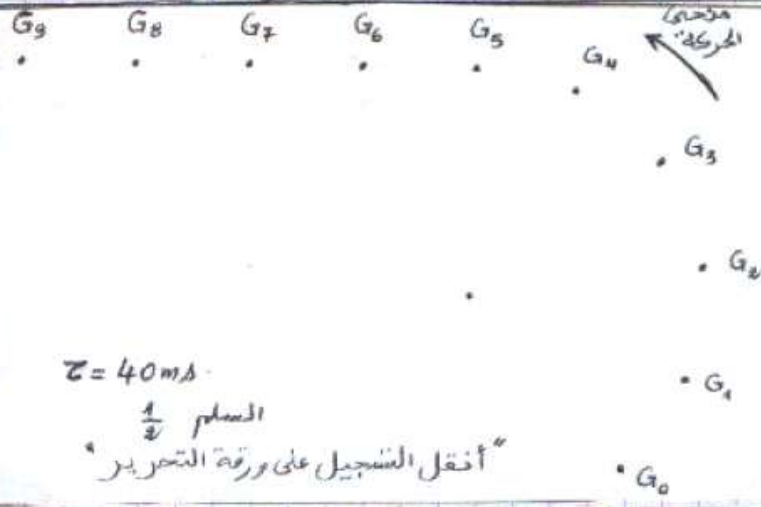 G₉ G₈ G₇ G₆ G₅ G₄
منحى
الحركة
G₃
G₂
τ = 40 ms
G₁
السلم 1/2
"أنقل التسجيل على ورقة التحرير"
G₀